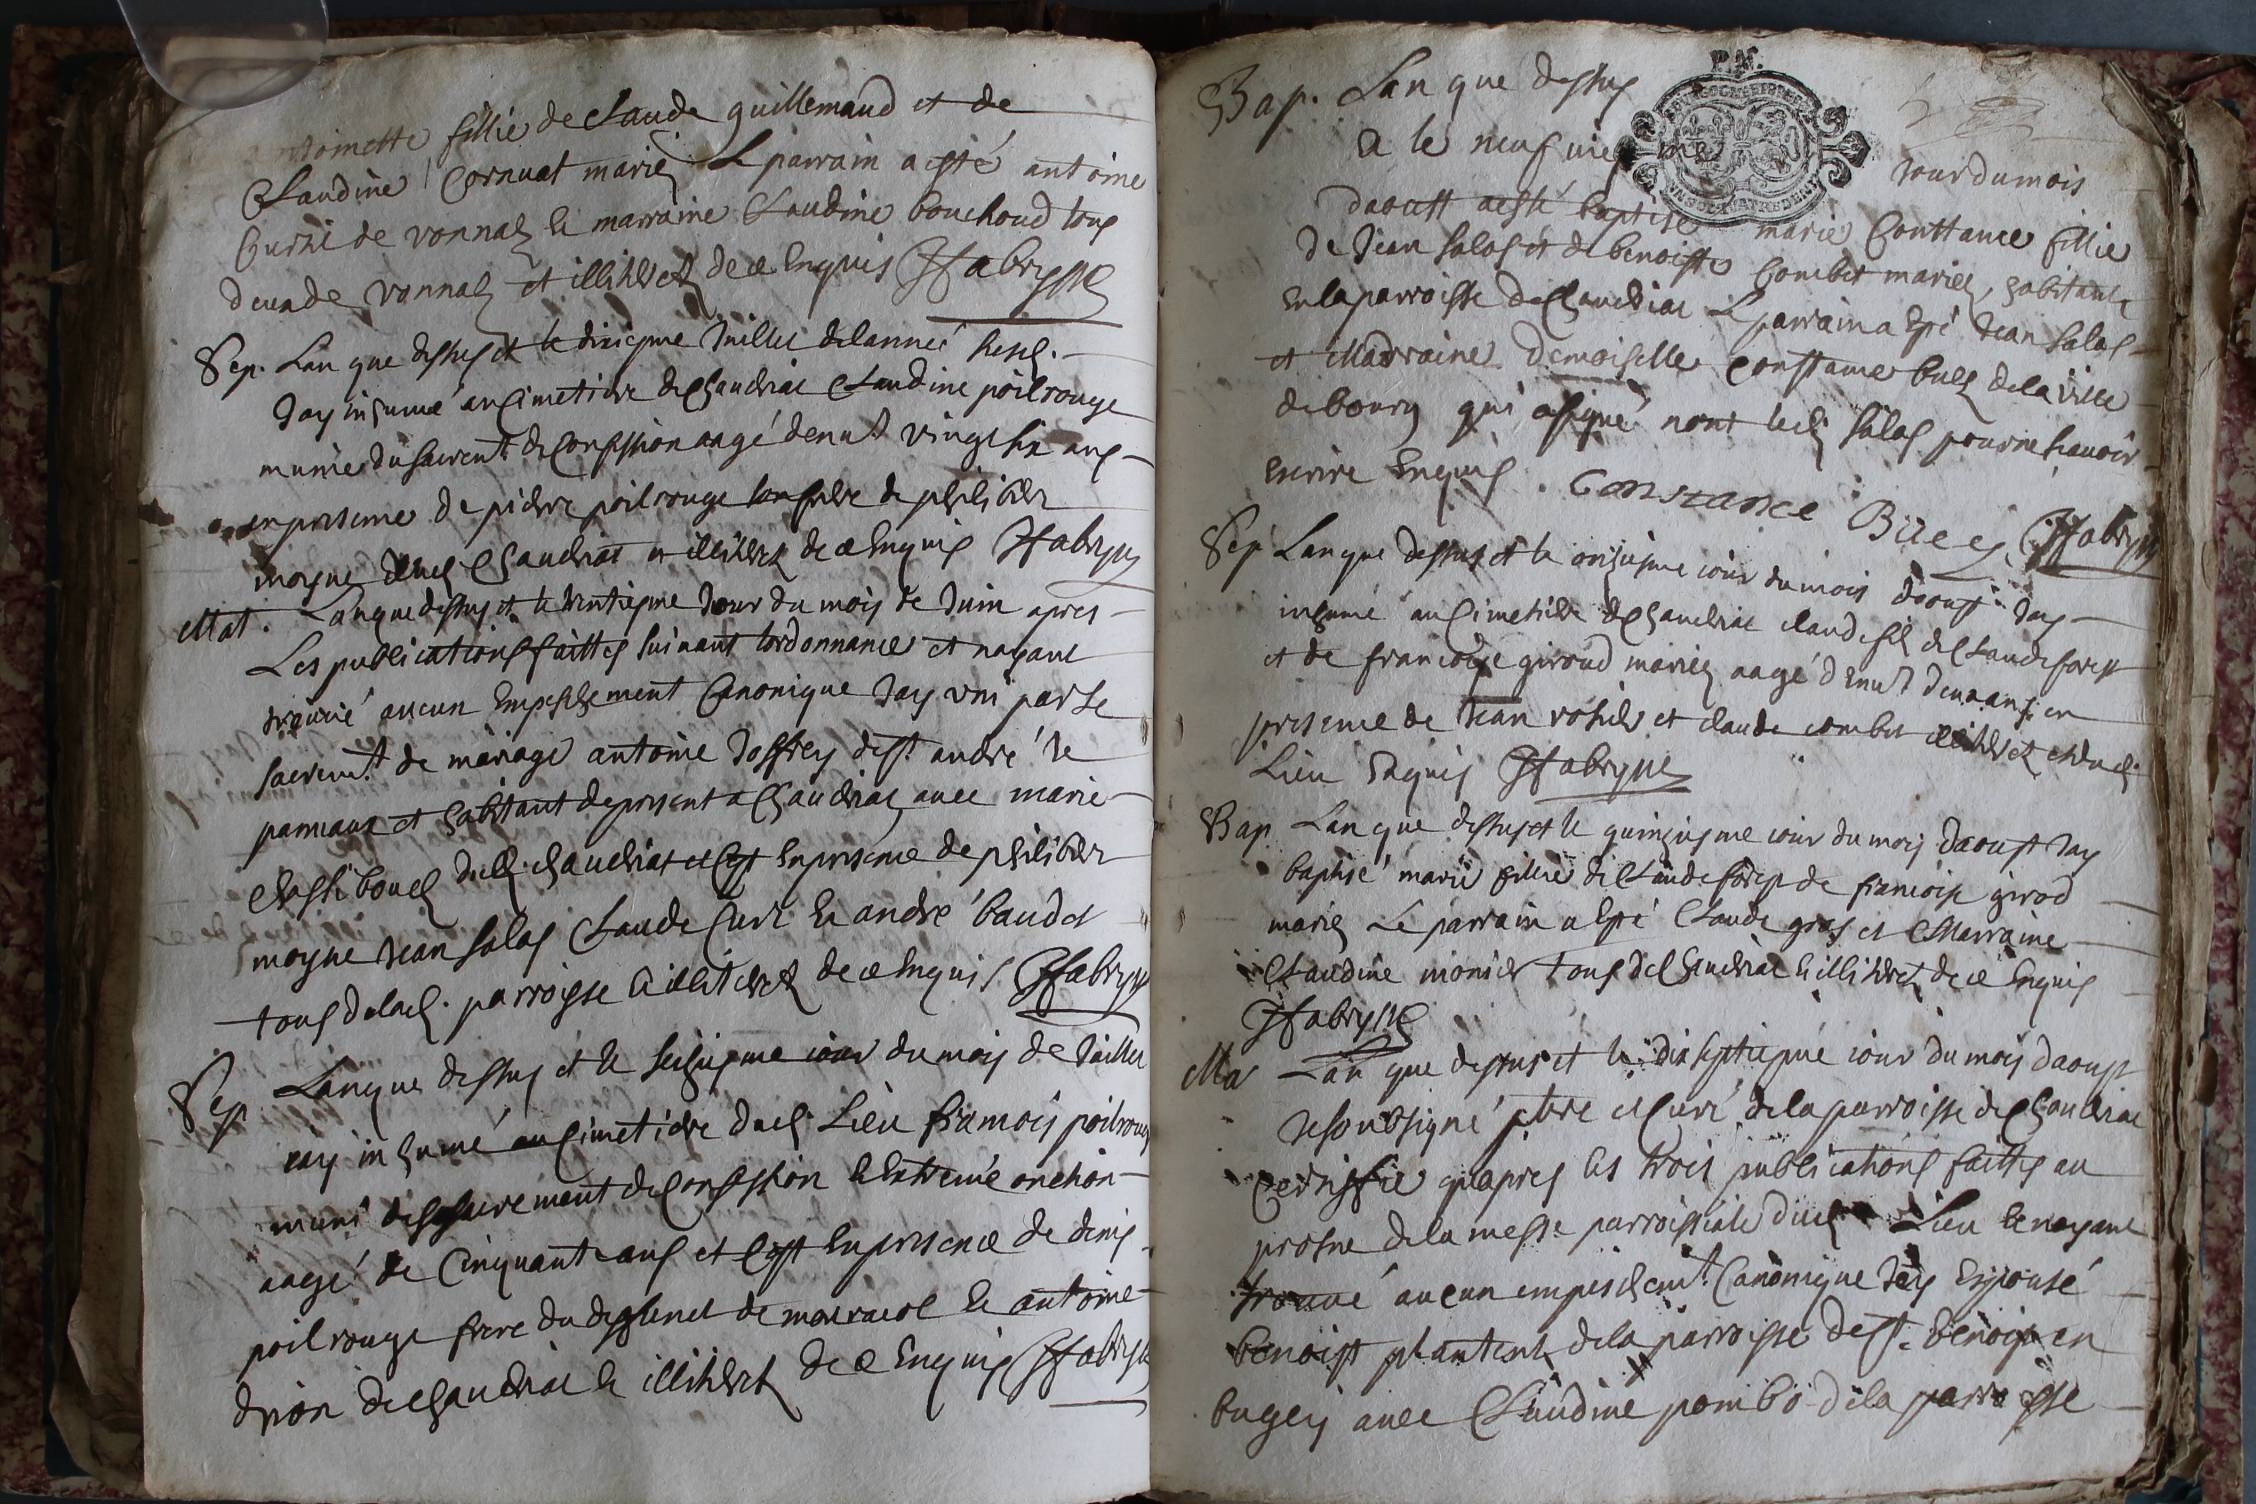 antoinette fillie de Claude guillemaud et de
Claudine Cornuat mariez Le parrain a esté antoine
Curni de vonnaz & marraine Claudine bouchoud tous
deux de vonnaz et illiterez de ce Enquis JFabrysse
Sep. Lan que dessus et le dixiesme Juillet de lannée
Jay inhumé au Cimetiere de Chaudriat Claudine poilrouge
munie du sacrent. de Confession aagé denv. vingt six ans
en presence de pierre poilrouge son frere de philibert
moyne dud. Chaudriat & illiterez de ce Enquis JFabrysse
Mat. Lan que dessus et le trentiesme Jour du mois de Juin apres
Les publications faittes suivant lordonnance et nayant
trouvé aucun Empeschement Canonique Jay uni par le
sacremt. de mariage antoine Joffrey de st. andré le
panoux et habitant de present a Chaudriat avec marie
du dit Chaudriat et Cest En presence de philibert
moyne Jean salos Claude Curt & andré baudet
tous de lad. parroisse & illiterez de ce Enquis JFabrysse
Sep. Lan que dessus et le seiziesme iour du mois de Juillet
iay inhumé au Cimetiere dud. Lieu francois poilrouge
muni des sacrement de Confession & Extreme onction
aagé de Cinquante ans et Cest En presence de denis
poilrouge frere du deffunct de & antoine
drion de Chaudriat & illiterez de ce Enquis JFabrysse
Bap. Lan que dessus
& le neufviesme Jour du mois
daoust a esté baptisée marie Constance fillie
de Jean salos et de benoiste Combet mariez, habitants
En la parroisse de Chaudriat Le parrain a Esté Jean salos
et Marraine demoiselle Constance buez de la ville
de bourg qui a signé non ledit salos pour ne scavoir
escrire Enquis. Constance Buez JFabrysse
Sep Lan que dessus et le onziesme iour du mois daoust Jay
inhumé au Cimetiere de Chaudriat claude fils de Claude forest
et de francoise giroud mariez aagé denv. deux ans en
presence de Jean rosier et claude combet illiterez et dud.
Lieu Enquis JFabrysse
Bap Lan que dessus et le quinziesme iour du mois daoust Jay
baptisé marie fillie de Claude forest de francoise girod
mariez Le parrain a Esté Claude gras et Marraine
Claudine monier tous de Chaudriat & illiterez de ce Enquis
JFabrysse
Ma Lan que dessus et le dix septiesme iour du mois daoust
Je soubsigné ptre et Curé de la parroisse de Chaudriat
Certiffie quapres les trois publications faittes au
prosne de la messe parroissiale dud. Lieu & nayant
trouvé aucun empeschemt. Canonique Jay Espousé
benoist plantent de la parroisse de st. benoist en
bugey avec Claudine pombo de la parroisse